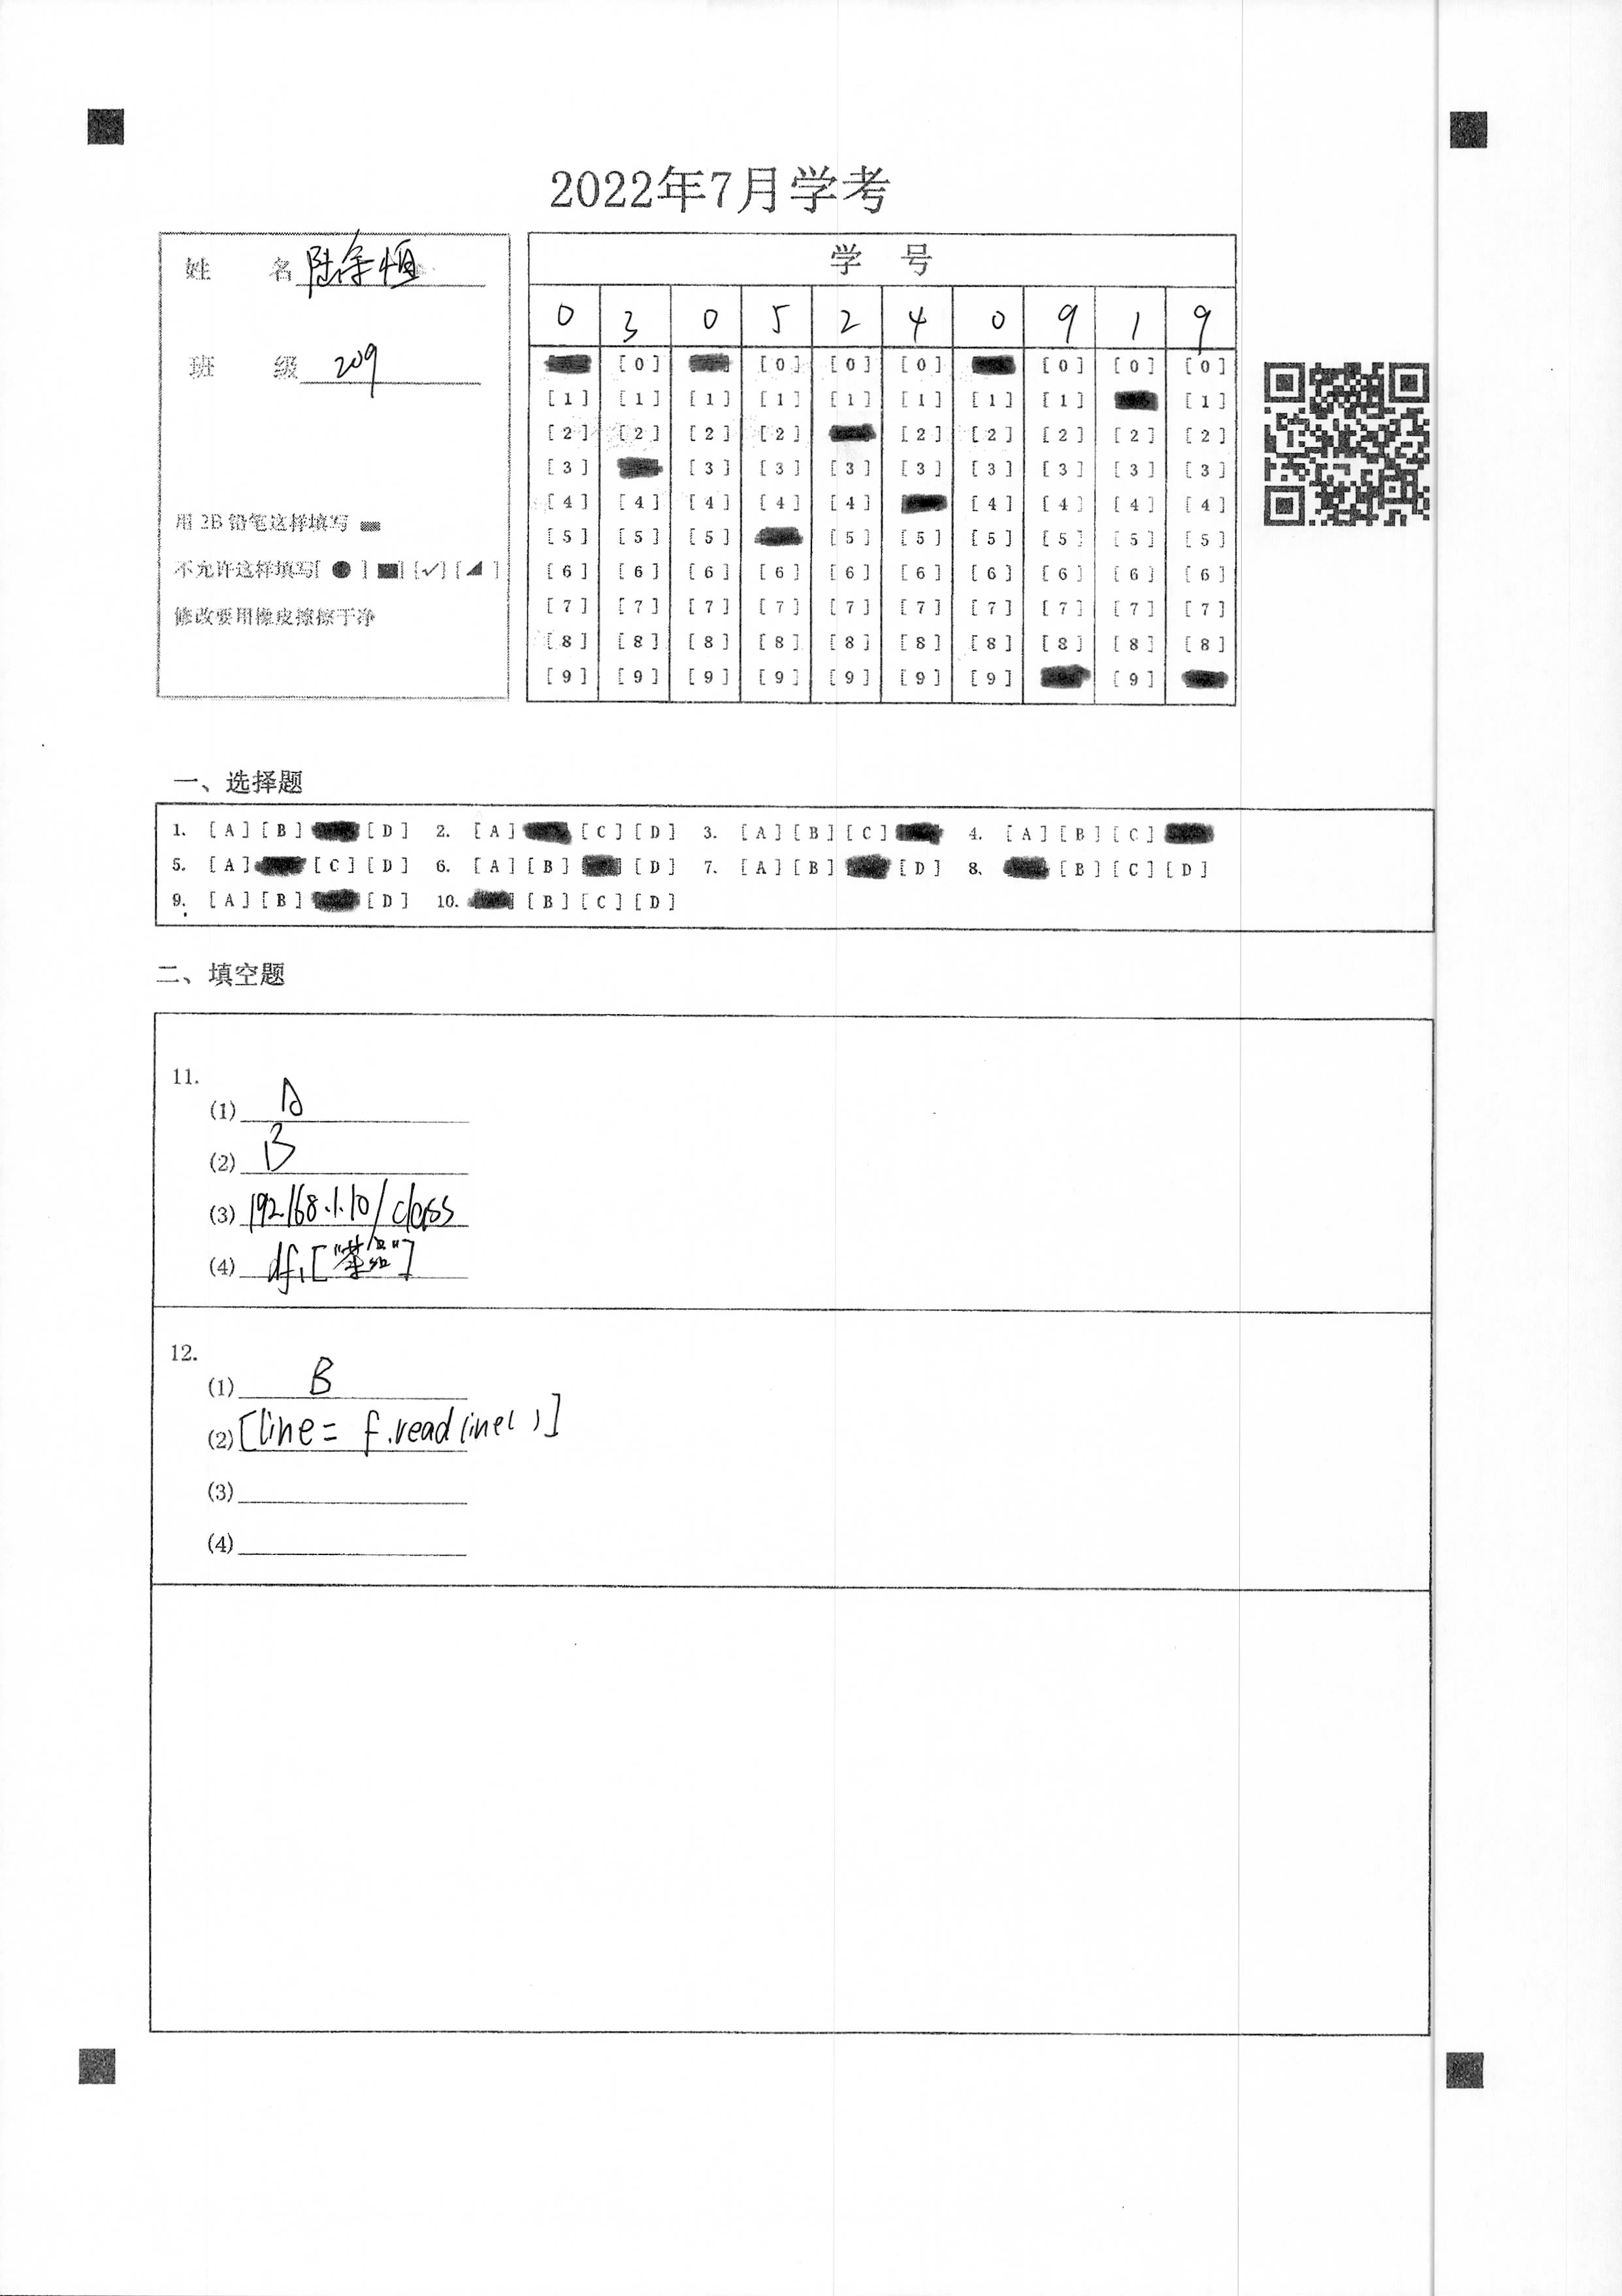 2022年7月学考
姓 名 陆余恒
班 级 209
用 2B 铅笔这样填写
不允许这样填写[ ● ] [■] [✓] [◢ ]
修改要用橡皮擦擦干净
学 号
0 3 0 5 2 4 0 9 1 9
[0] [0] [0] [0] [0] [0] [0]
[1] [1] [1] [1] [1] [1] [1] [1] [1]
[2] [2] [2] [2] [2] [2] [2] [2] [2]
[3] [3] [3] [3] [3] [3] [3] [3] [3]
[4] [4] [4] [4] [4] [4] [4] [4] [4]
[5] [5] [5] [5] [5] [5] [5] [5] [5]
[6] [6] [6] [6] [6] [6] [6] [6] [6] [6]
[7] [7] [7] [7] [7] [7] [7] [7] [7] [7]
[8] [8] [8] [8] [8] [8] [8] [8] [8] [8]
[9] [9] [9] [9] [9] [9] [9] [9]
一、选择题
1. [A] [B] [D] 2. [A] [C] [D] 3. [A] [B] [C] 4. [A] [B] [C]
5. [A] [C] [D] 6. [A] [B] [D] 7. [A] [B] [D] 8. [B] [C] [D]
9. [A] [B] [D] 10. [B] [C] [D]
二、填空题
11.
(1) A
(2) B
(3) 192.168.1.10/class
(4) df1["菜品"]
12.
(1) B
(2) [line = f.readline()]
(3)
(4)